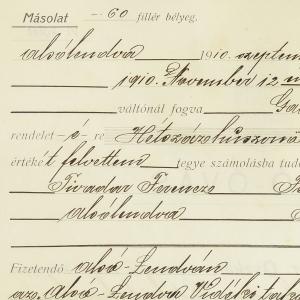 Másolat — 60 fillér bélyeg.
Alsólendva 1910. szeptem
1910. November 12
váltónál fogva
rendelet -é- re Hétszázhúszon
értéket felvettem tegye számolásba tud
Tivadar Ferencz
Alsólendva
Fizetendő Alsó-Lendván
az. Alsó-Lendva Vidéki tak